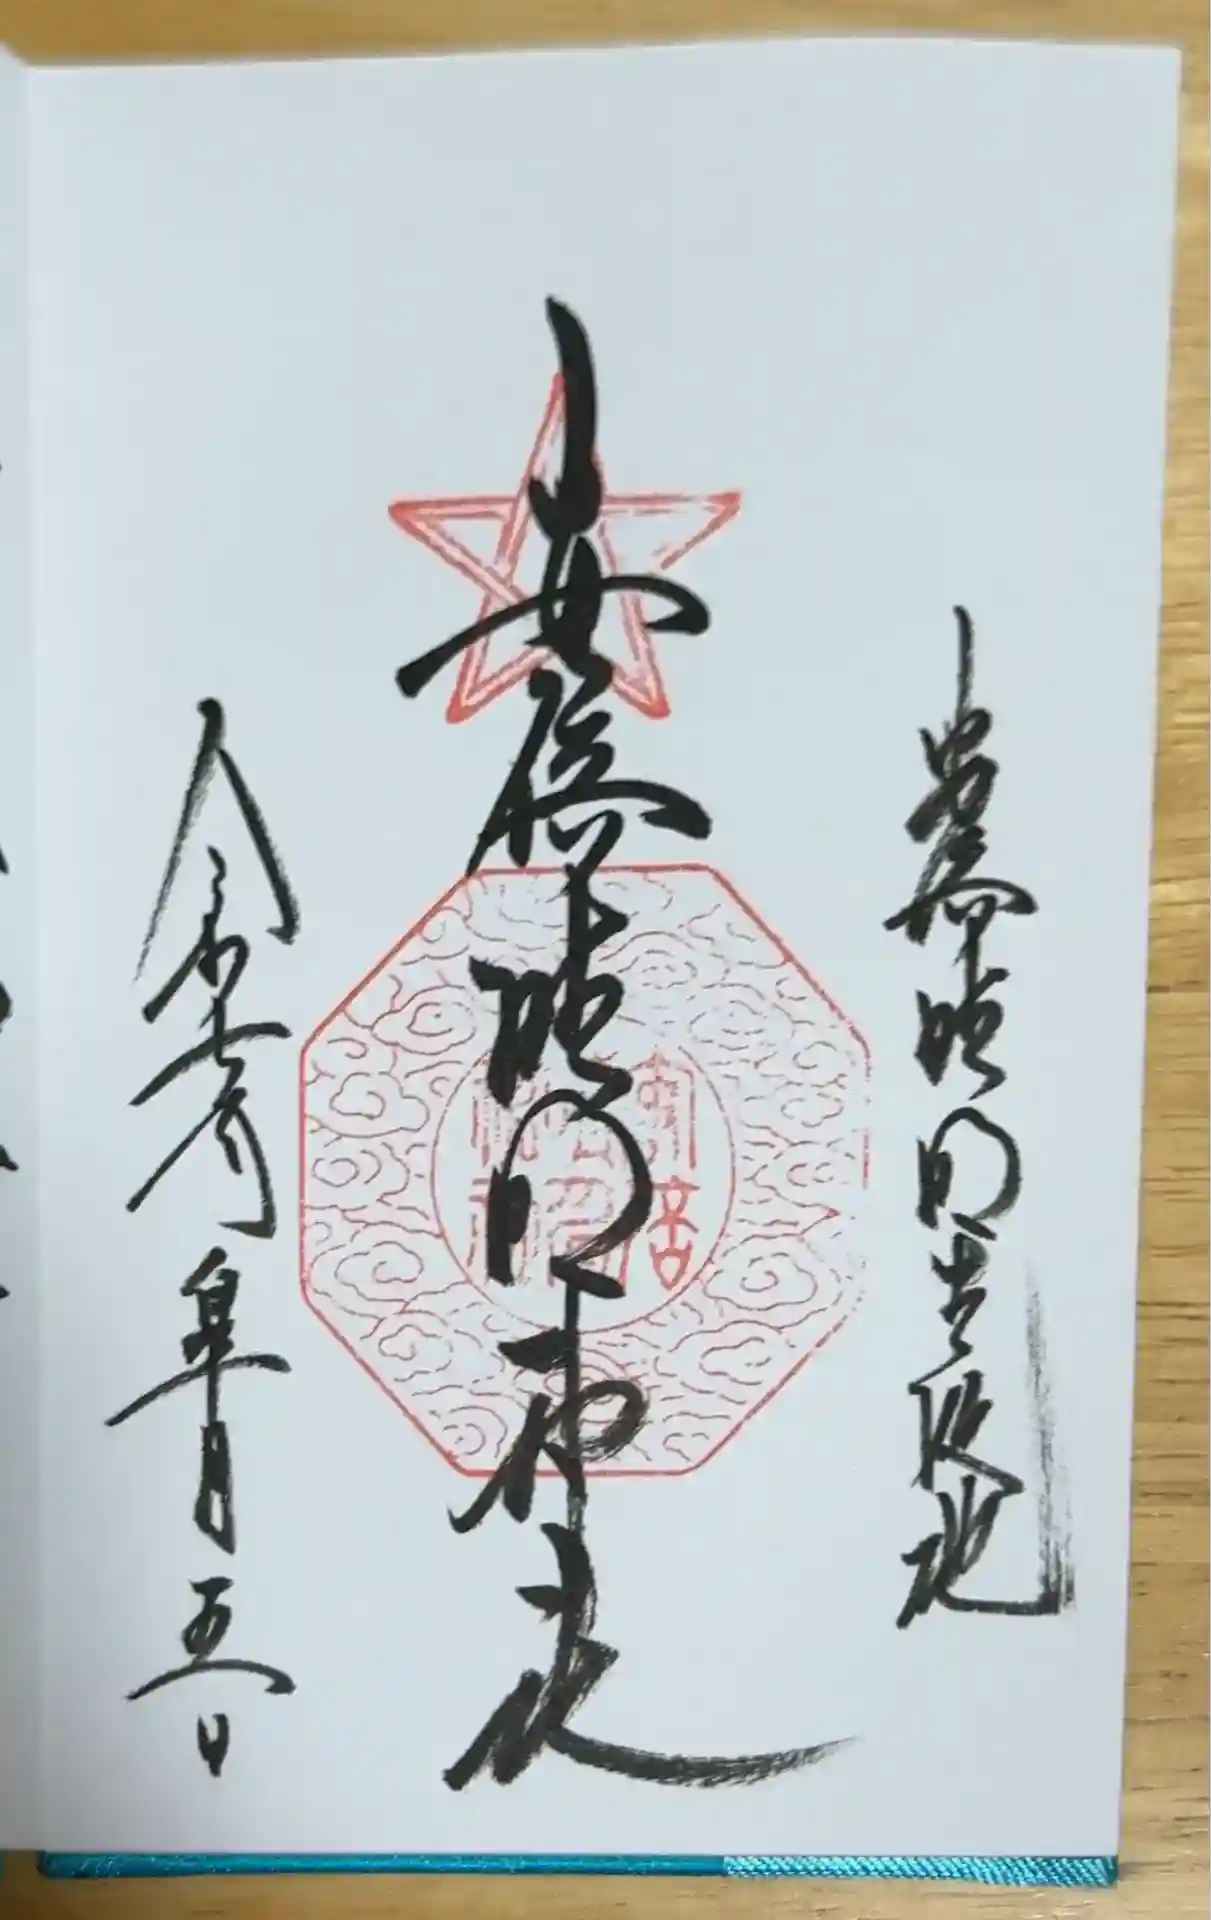 安倍晴明生誕地
安倍晴明神社
令和七年皐月五日